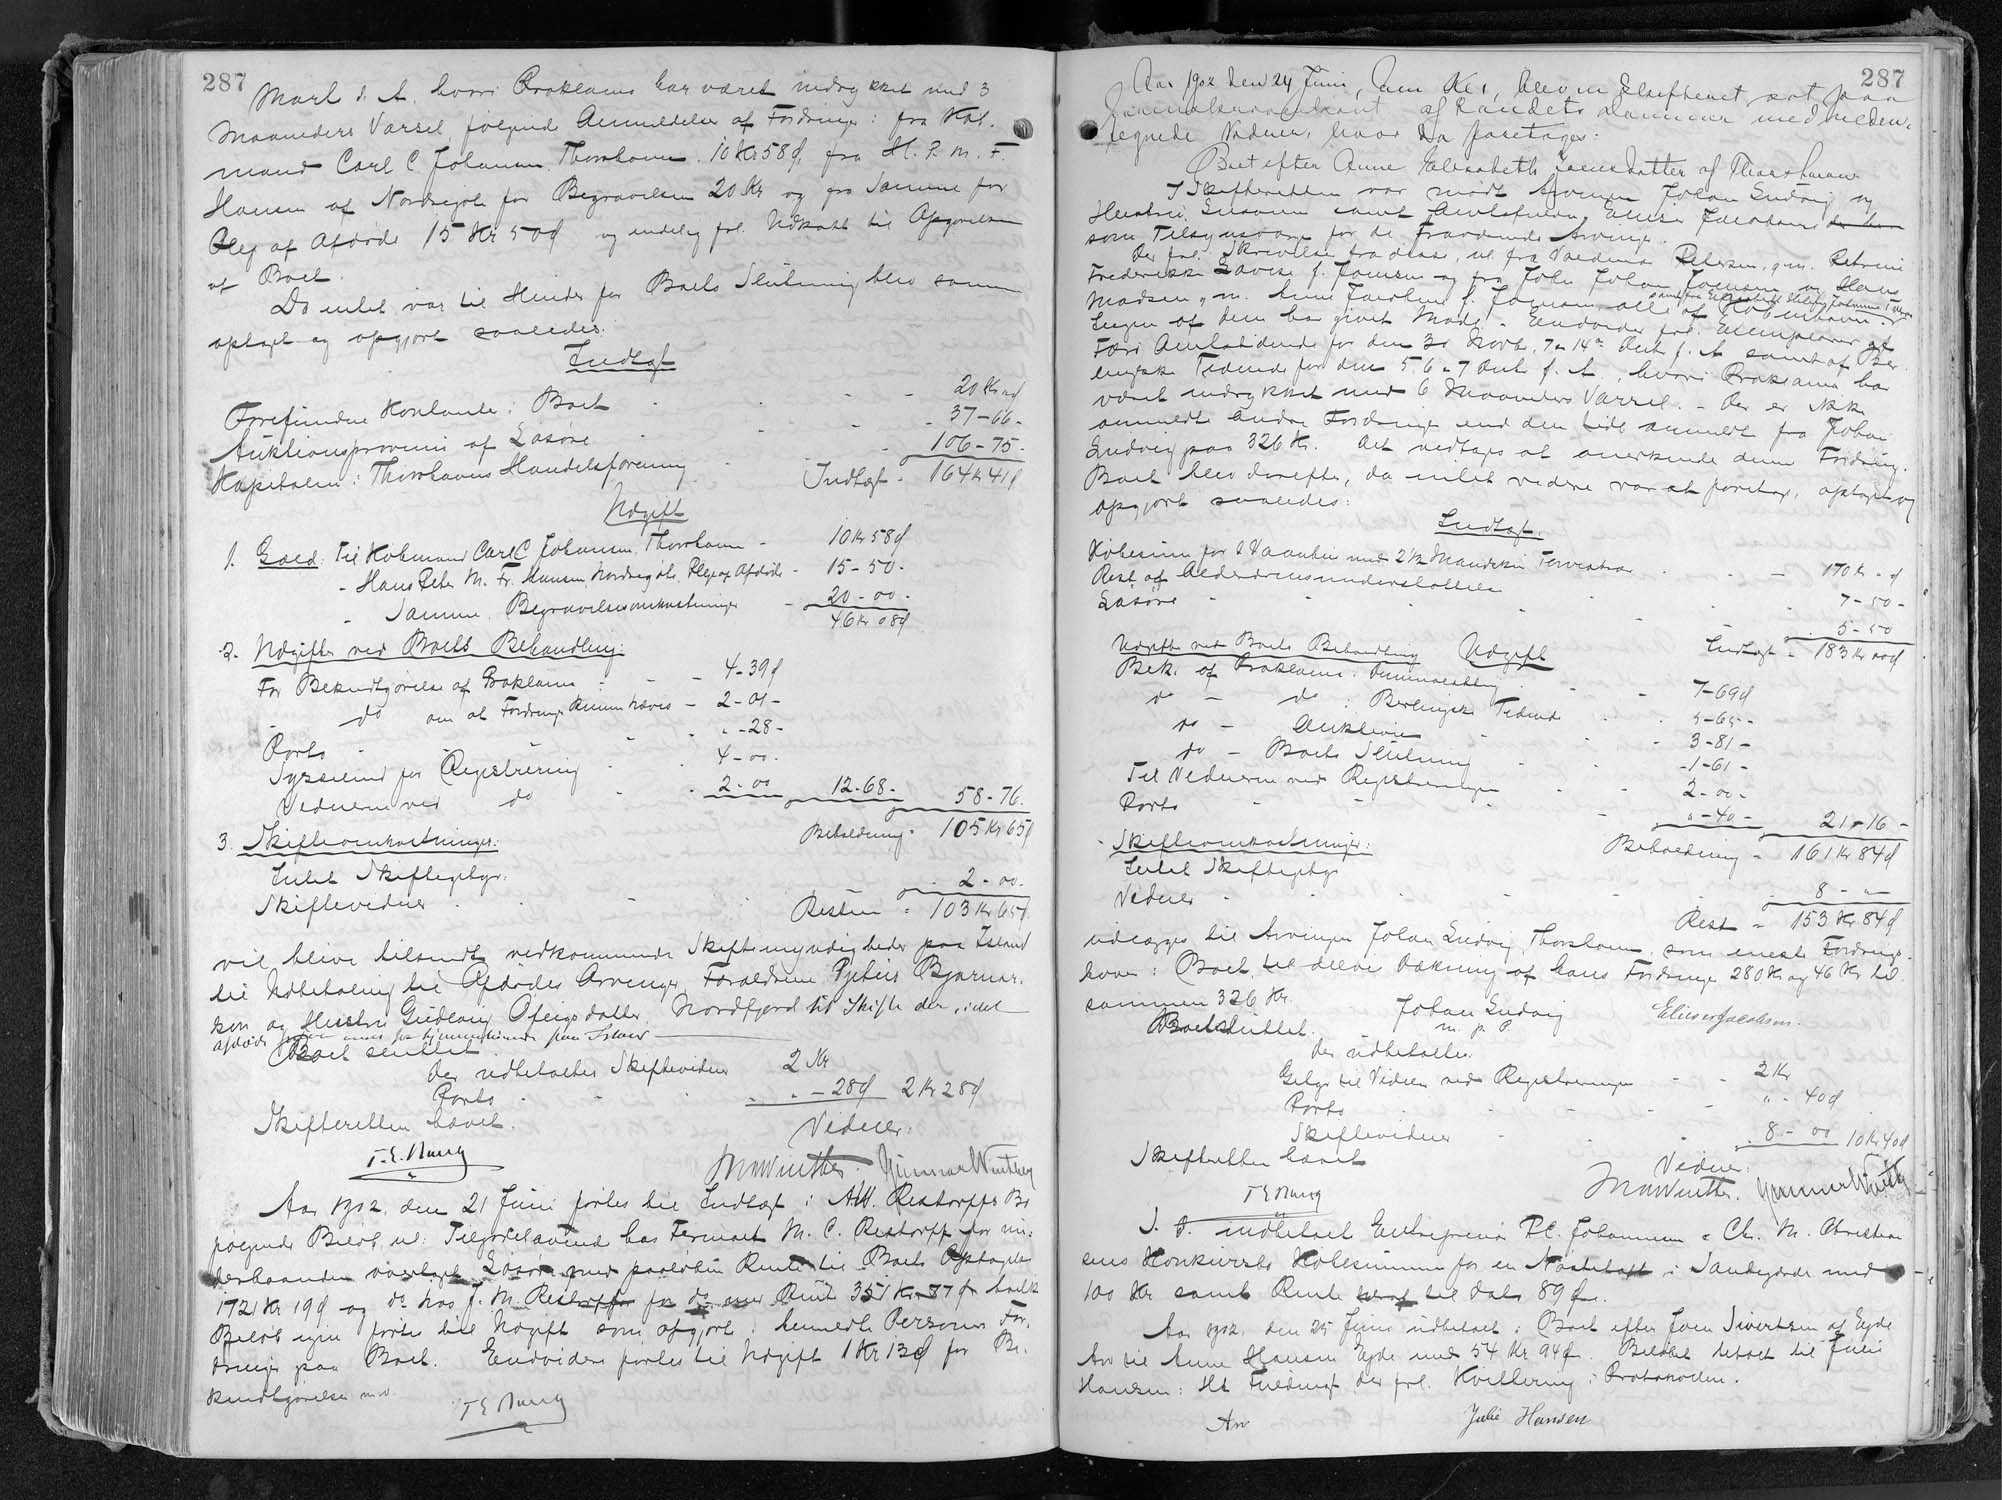 287
Marts d. A. hvori Proklama har været indrykket med 3
Maaneders Varsel, følgende Anmeldelser af Fordringer: fra Køb-
mand Carl C Johansen, Thorshavn 10 Kr 58 Ø, fra H. P. M. F.
Hansen af Nordregøte for Begravelsen 20 Kr og fra Samme for
Pleje af Afdøde 15 Kr 50 Ø og endelig frl. Udkast til Opgørelsen
af Boet.
Da intet var til Hinder for Boets Slutning blev samme
optaget og opgjort saaledes:
Indtægt
Forefundne Kontanter i Boet - - - 20 Kr
Auktionsprovenu af Løsøre - - - 37-66-
Kapitalen i Thorshavns Handelsforening - - 106-75-
Indtægt - 164 Kr 41 Ø
Udgift
1. Gæld: Til Købmand Carl C Johansen, Thorshavn - 10 Kr 58 Ø
- Hans Peter M. Fr. Hansen, Nordregøte, Pleje af Afdøde - 15-50-
- Samme, Begravelsesomkostninger - 20-00-
46 Kr 08 Ø
2. Udgifter ved Boets Behandling:
For Bekendtgørelse af Proklama - - 4-39 Ø
- do om at Fordringer kunne hæves - 2-01-
Porto - - - " -28-
Sysselmd for Registrering - - 4-00-
Vidnerne ved do - - 2-00 12-68- 58-76-
Beholdning - 105 Kr 65 Ø
3. Skifteomkostninger:
Intet Skiftegebyr.
Skiftevidner - - - 2-00-
Resten - 103 Kr 65 Ø
vil blive tilsendt vedkommende Skiftemyndigheder paa Island
til Udbetaling til Afdødes Arvinger, Forældrene Pjetur Bjarnar-
son og Hustru Gudlaug Ofeigsdatter, Nordfjord til Skifte der, idet
Afdøde hjemmehørende paa Island
Boet sluttet.
Der udbetaltes Skiftevidner 2 Kr
Porto - - - " -28 Ø 2 Kr 28 Ø
Skifteretten hævet.
Vidner:
T. E. Bærug
MWinther. Gunnar Winther
Aar 1902, den 21 Juni førtes til Indtægt i A.W. Restorffs Bo
følgende Beløb, nl: Tilgodehavende hos Firmaet M. C. Restorff for un-
derhaanden overtaget Løsøre med paaløben Rente til Boets Optagelse
1721 Kr 19 Ø og do hos J. M. Restorff for do med Rente 351 Kr 87 Ø hvilke
Beløb igen førtes til Udgift som afgjort i nævnte Personers For-
dringer paa Boet. Endvidere førtes til Udgift 1 Kr 13 Ø for Be-
kendtgørelse m.v.
T E Bærug
287
Aar 1902 den 24 Juni, Em Kl 1, blev en Skifteret sat paa
Kriminalskontoret af Landets Dommer med neden-
tegnede Vidner, hvor da foretages:
Boet efter Anne Elisabeth Joensdatter af Thorshavn.
I Skifteretten var mødt Arvingen Johan Ludvig og
Hustru Susanne samt Amtsfuldm. Elieser Jacobsen
som Tilsynsværge for de fraværende Arvinger.
Der frl. Skrivelser fra disse, nl. fra Valdemar Petersen, g.m. Petrine
Frederikke Lovise f. Joensen og fra Joen Johan Joensen og Hans
Madsen g. m. Anne Jacobine f. Joensen alle af København.
Ingen af dem har givet Møde. - Endvidere frl. Exemplarer af
Færø Amtstidende for den 30 Novb. 7 & 14de Decb f. A samt af Ber-
lingske Tidende for den 5, 6 & 7 Decb f. A., hvori Proklama har
været indrykket med 6 Maaneders Varsel. - Der er ikke
anmeldt andre Fordringer end den tidl. anmeldt fra Johan
Ludvig paa 326 Kr. Det vedtages at anerkende denne Fordring.
Boet blev derefter, da intet videre var at foretage, optaget og
opgjort saaledes:
Indtægt.
Købesum for 1 Vaaning med 2½ Maaneders - - 170 Kr - Ø
Rest af Alderdomsunderstøttelse - - 7-50-
Løsøre - - - 5-50
Indtægt - 183 Kr 00 Ø
Udgift
Udgifter ved Boets Behandling
Bek. af Proklama i Dimmalætting - - 7-69 Ø
do - do i Berlingske Tidende - - 5-65-
do - Auktion - - 3-81-
do - Boets Slutning - - 1-61-
Til Vidnerne ved Registreringen - - 2-00-
Porto - - - " -40- 21-16-
Beholdning - 161 Kr 84 Ø
Skifteomkostninger:
Intet Skiftegebyr
Vidner - - - 8-"-
Rest - 153 Kr 84 Ø
udlægges til Arvingen Johan Ludvig, Thorshavn, som eneste Fordrings-
haver i Boet til delvis Dækning af hans Fordringer 280 Kr og 46 Kr til-
sammen 326 Kr.
Johan Ludvig Elieser Jacobsen.
m. p. P.
Boet sluttet.
Der udbetaltes
Gebyr til Vidner ved Registreringen - - 2 Kr
Porto - - - " - 40 Ø
Skiftevidner - - 8-00 10 Kr 40 Ø
Skifteretten hævet
Vidner:
T E Bærug
MWinther. Gunnar Winther
S. D. indbetalt Entreprenør P.C. Johannesen i Ch. M. Christian-
sens Konkursbo Købesummen for en i Sandegærde med
100 Kr samt Rente heraf til Dato 89 Ø.
Aar 1902, den 25 Juni udbetalt i Boet efter Joen Sivertsen af Ejde
Arv til Anne Hansen Ejde med 54 Kr 94 Ø. Beløbet betalt til Julie
Hansen i Hl Fuldmagt der frl. Kvittering i Protokollen.
Arv Julie Hansen